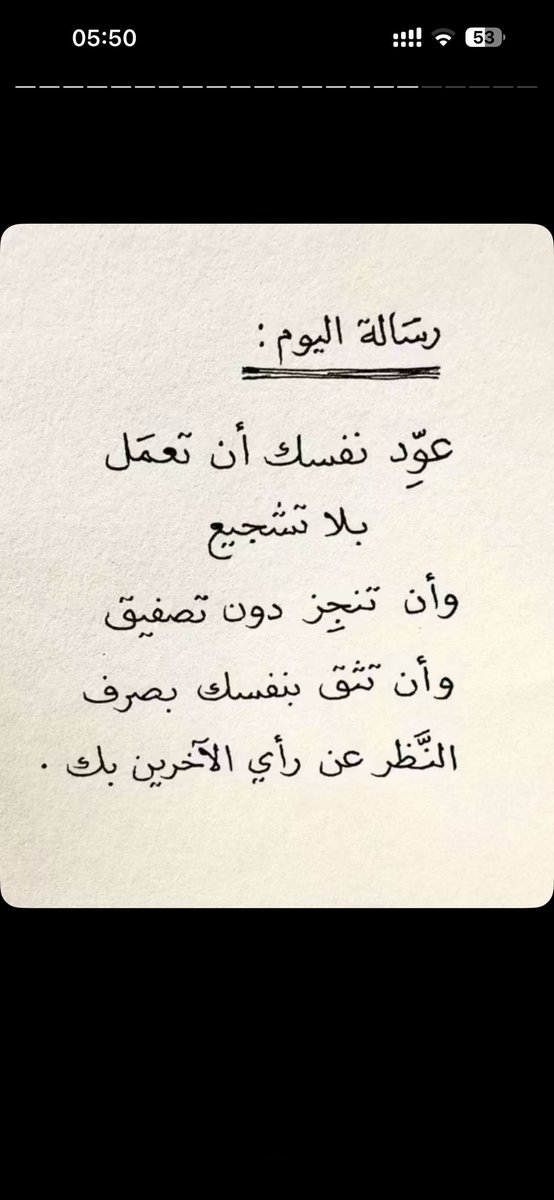 05:50
53
رسَالة اليوم :
عوِّد نفسك أن تعمَل
بلا تشجيع
وأن تنجِز دون تصفيق
وأن تثق بنفسك بصرف
النَّظر عن رأي الآخرين بك .